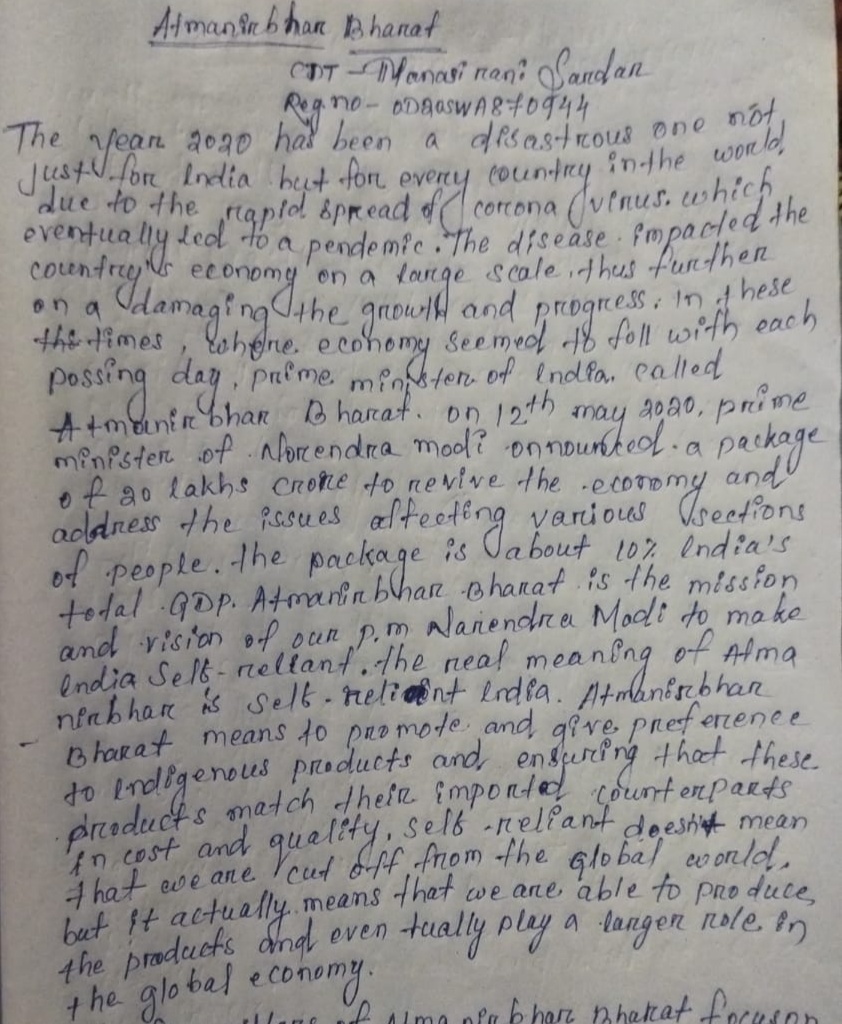 Atmanirbhar Bharat
CDT - Manasi rani Sardar
Reg no - OD20SWA870944
The year 2020 has been a disastrous one not
just for India but for every country in the world,
due to the rapid spread of corona virus. which
eventually led to a pendemic. The disease impacted the
country's economy on a large scale, thus further
on a damaging the growth and progress. In these
the times, where economy seemed to fall with each
possing day, prime minister of India. called
Atmanirbhar Bharat. on 12th may 2020, prime
minister of Norendra modi onnounced. a package
of 20 lakhs crore to revive the economy and
address the issues affecting various sections
of people. the package is about 10% India's
total GDP. Atmanirbhar Bharat is the mission
and vision of our p.m Narendra Modi to make
India Self-reliant. the real meaning of Atma
nirbhar is self-reliant India. Atmanirbhar
Bharat means to promote and give preference
to indigenous products and ensuring that these
products match their imported counterparts
in cost and quality, self-reliant doesn't mean
that we are cut off from the global world,
but it actually means that we are able to produce
the products and even tually play a larger role in
the global economy.
of Atma nirbhar Bharat focus on